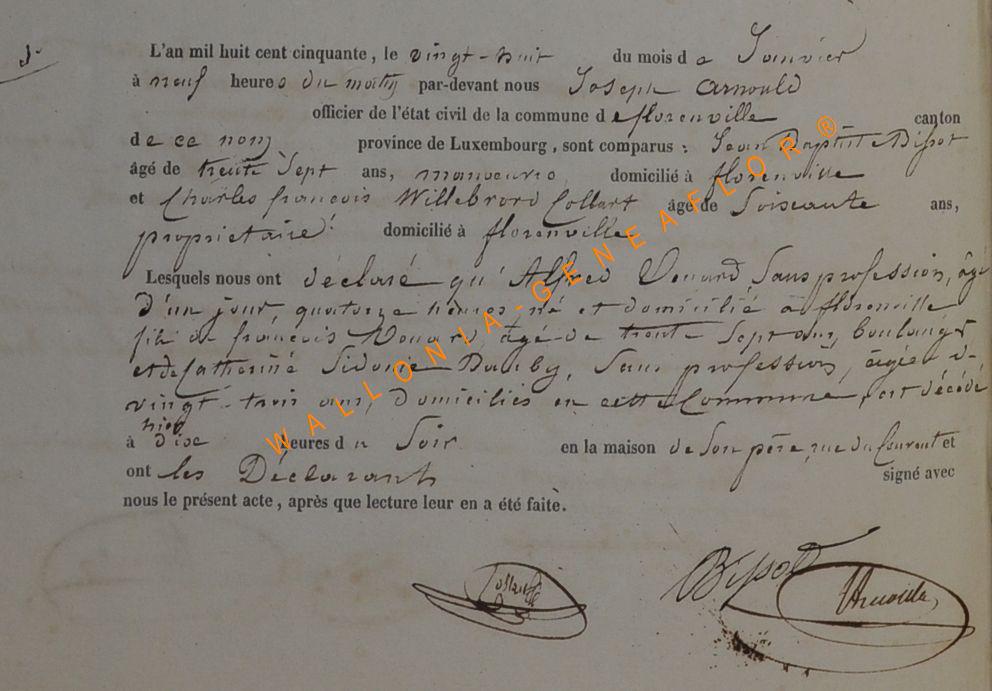 L'an mil huit cent cinquante, le vingt-huit du mois de Janvier
à neuf heures du matin par-devant nous Joseph Arnould
officier de l'état civil de la commune de florenville canton
de ce nom province de Luxembourg, sont comparus : Jean Baptiste Bissot
âgé de trente Sept ans, manoeuvre domicilié à florenville
et Charles françois Willebrord Collart âgé de Soixante ans,
propriétaire domicilié à florenville
Lesquels nous ont déclaré qu'Alfred Sans profession, âgé
d'un jour, quatorze heures, né et domicilié à florenville
fils de françois âgé de trente Sept ans, boulanger
et de Catherine Sidonie Sans profession, âgée de
vingt-trois ans, domiciliés en cette Commune, est décédé
hier
à dix heures du Soir en la maison de Son père, rue du Courant et
ont les Déclarants signé avec
nous le présent acte, après que lecture leur en a été faite.
Collart Bissot Arnould
WALLONIA-GENEAFLOR®